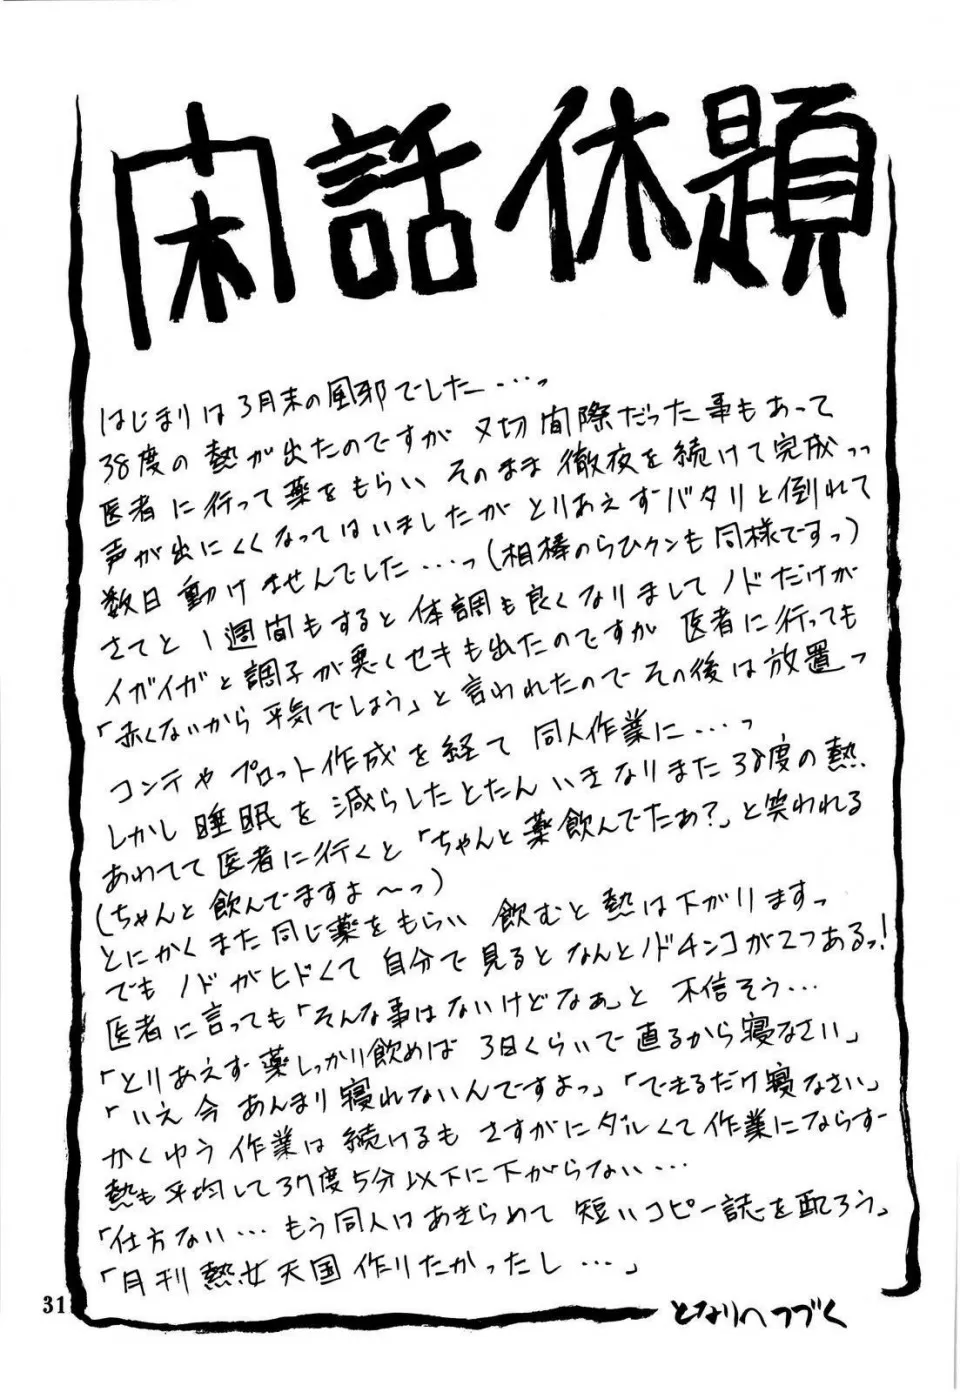 閑話休題
はじまりは3月末の風邪でした…っ
38度の熱が出たのですが〆切間際だった事もあって
医者に行って薬をもらい そのまま徹夜を続けて完成っっ
声が出にくくなってはいましたがとりあえずバタリと倒れて
数日動けませんでした…っ(相棒のらひクンも同様ですっ)
さてと1週間もすると体調も良くなりましてノドだけが
イガイガと調子が悪くセキも出たのですが 医者に行っても
「赤くないから平気でしょう」と言われたのでその後は放置っ
コンテやプロット作成を経て 同人作業に…っ
しかし睡眠を減らしたとたんいきなりまた38度の熱
あわてて医者に行くと「ちゃんと薬飲んでたあ?」と笑われる
(ちゃんと飲んでますよ〜っ)
とにかくまた同じ薬をもらい 飲むと熱は下がりますっ
でもノドがヒドくて自分で見るとなんとノドチンコが2つあるっ!
医者に言っても「そんな事はないけどなぁ」と 不信そう…
「とりあえず薬しっかり飲めば 3日くらいで直るから寝なさい」
「いえ今あんまり寝れないんですよっ」「できるだけ寝なさい」
かくゆう作業は続けるも さすがにダルくて作業にならず
熱も平均して37度5分以下に下がらない…
「仕方ない…もう同人はあきらめて 短いコピー誌を配ろう」
「月刊熱女天国作りたかったし…」
となりへつづく
31